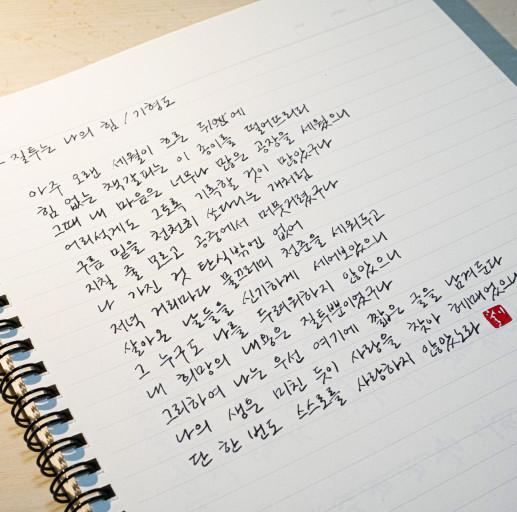 - 질투는 나의 힘 / 기형도
아주 오랜 세월이 흐른 뒤에
힘 없는 책갈피는 이 종이를 떨어뜨리리
그때 내 마음은 너무나 많은 공장을 세웠으니
어리석게도 그토록 기록할 것이 많았구나
구름 밑을 천천히 쏘다니는 개처럼
지칠 줄 모르고 공중에서 머뭇거렸구나
나 가진 것 탄식밖에 없어
저녁 거리마다 물끄러미 청춘을 세워두고
살아온 날들을 신기하게 세어보았으니
그 누구도 나를 두려워하지 않았으니
내 희망의 내용은 질투뿐이었구나
그리하여 나는 우선 여기에 짧은 글을 남겨둔다
나의 생은 미친 듯이 사랑을 찾아 헤매었으나
단 한 번도 스스로를 사랑하지 않았노라